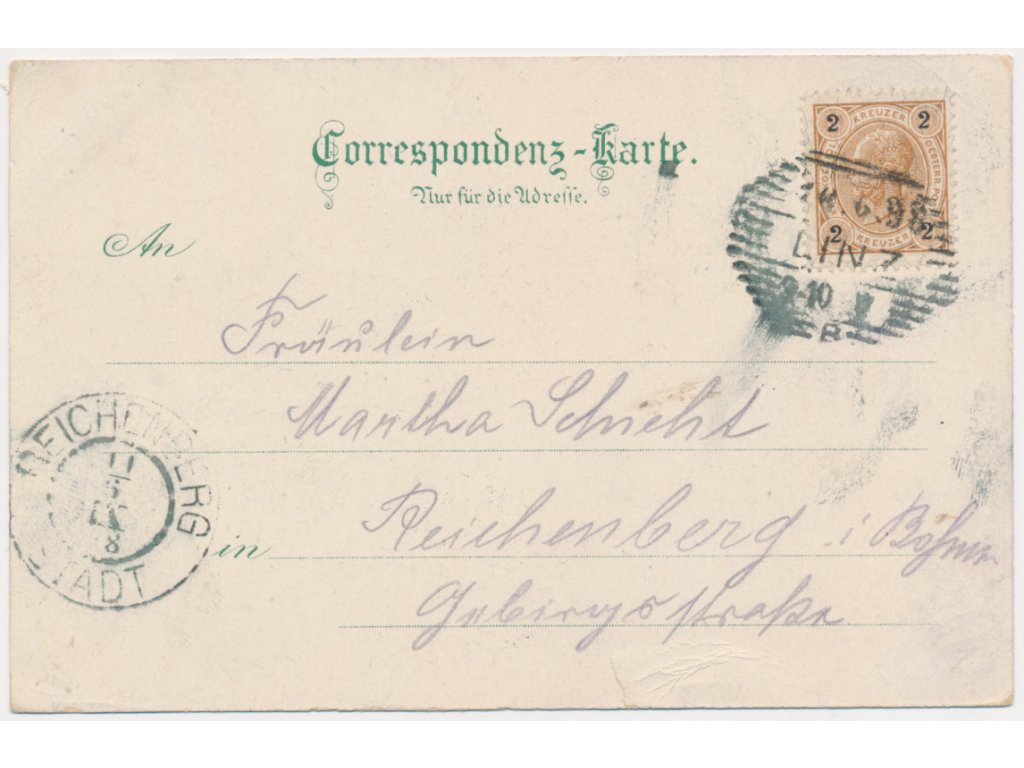 Correspondenz-Karte.
Nur für die Adresse.
An
2 KREUZER 2
2 KREUZER 2
LINZ
9-10
Fräulein
Martha Schicht
REICHENBERG
STADT
in Reichenberg i Böhmen
Gebirgsstraße